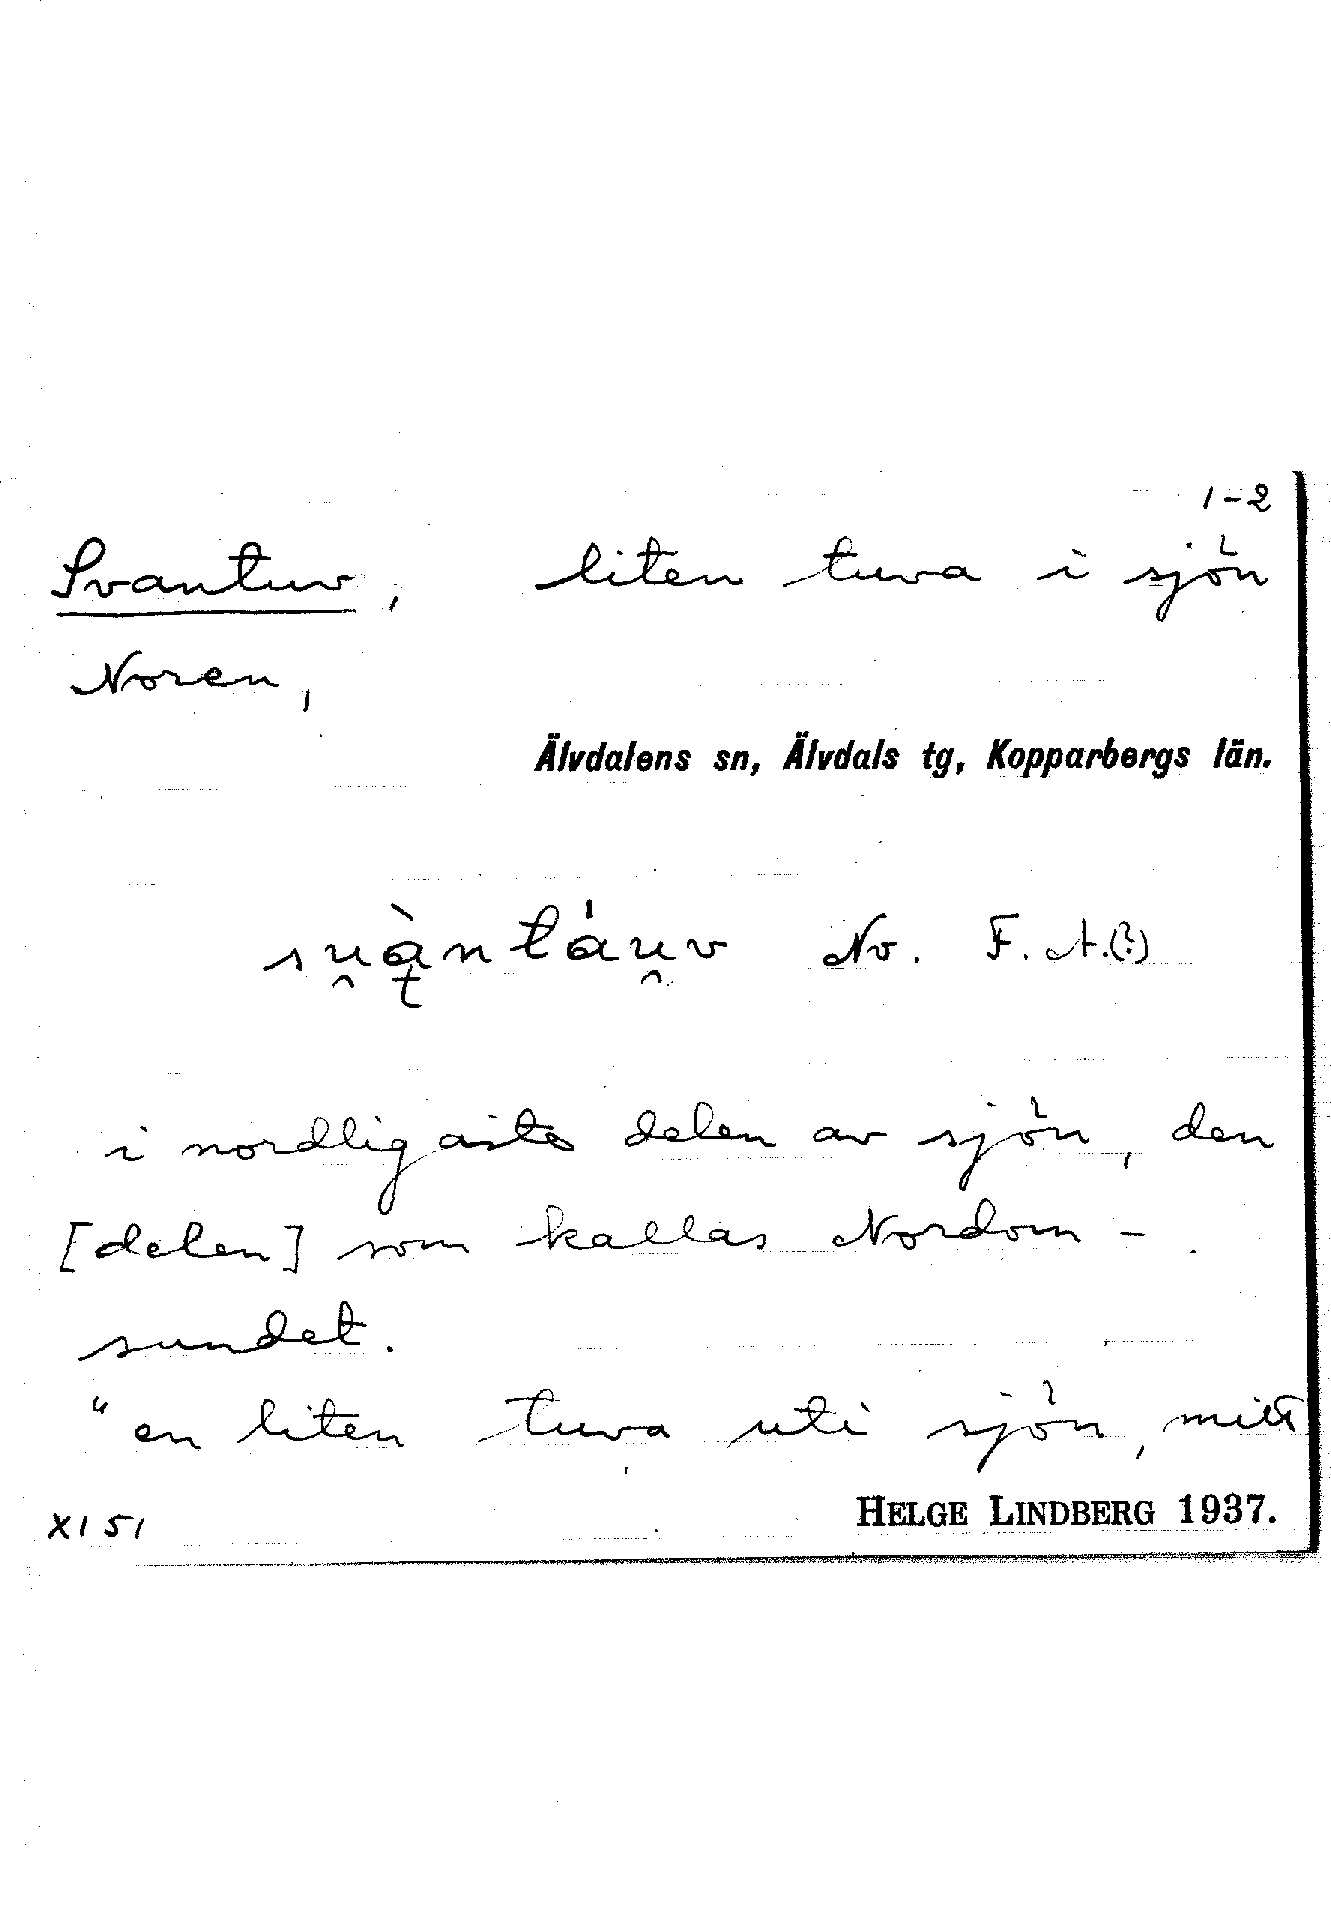 1-2
Svantuv, liten tuva i sjön
Noren,
Älvdalens sn, Älvdals tg, Kopparbergs län.
su̯à̧ntáu̯v No. F. A.(?)
i nordligaste delen av sjön, den
[delen] som kallas Nordom-
sundet.
"en liten tuva uti sjön, mitt
XI 51
HELGE LINDBERG 1937.